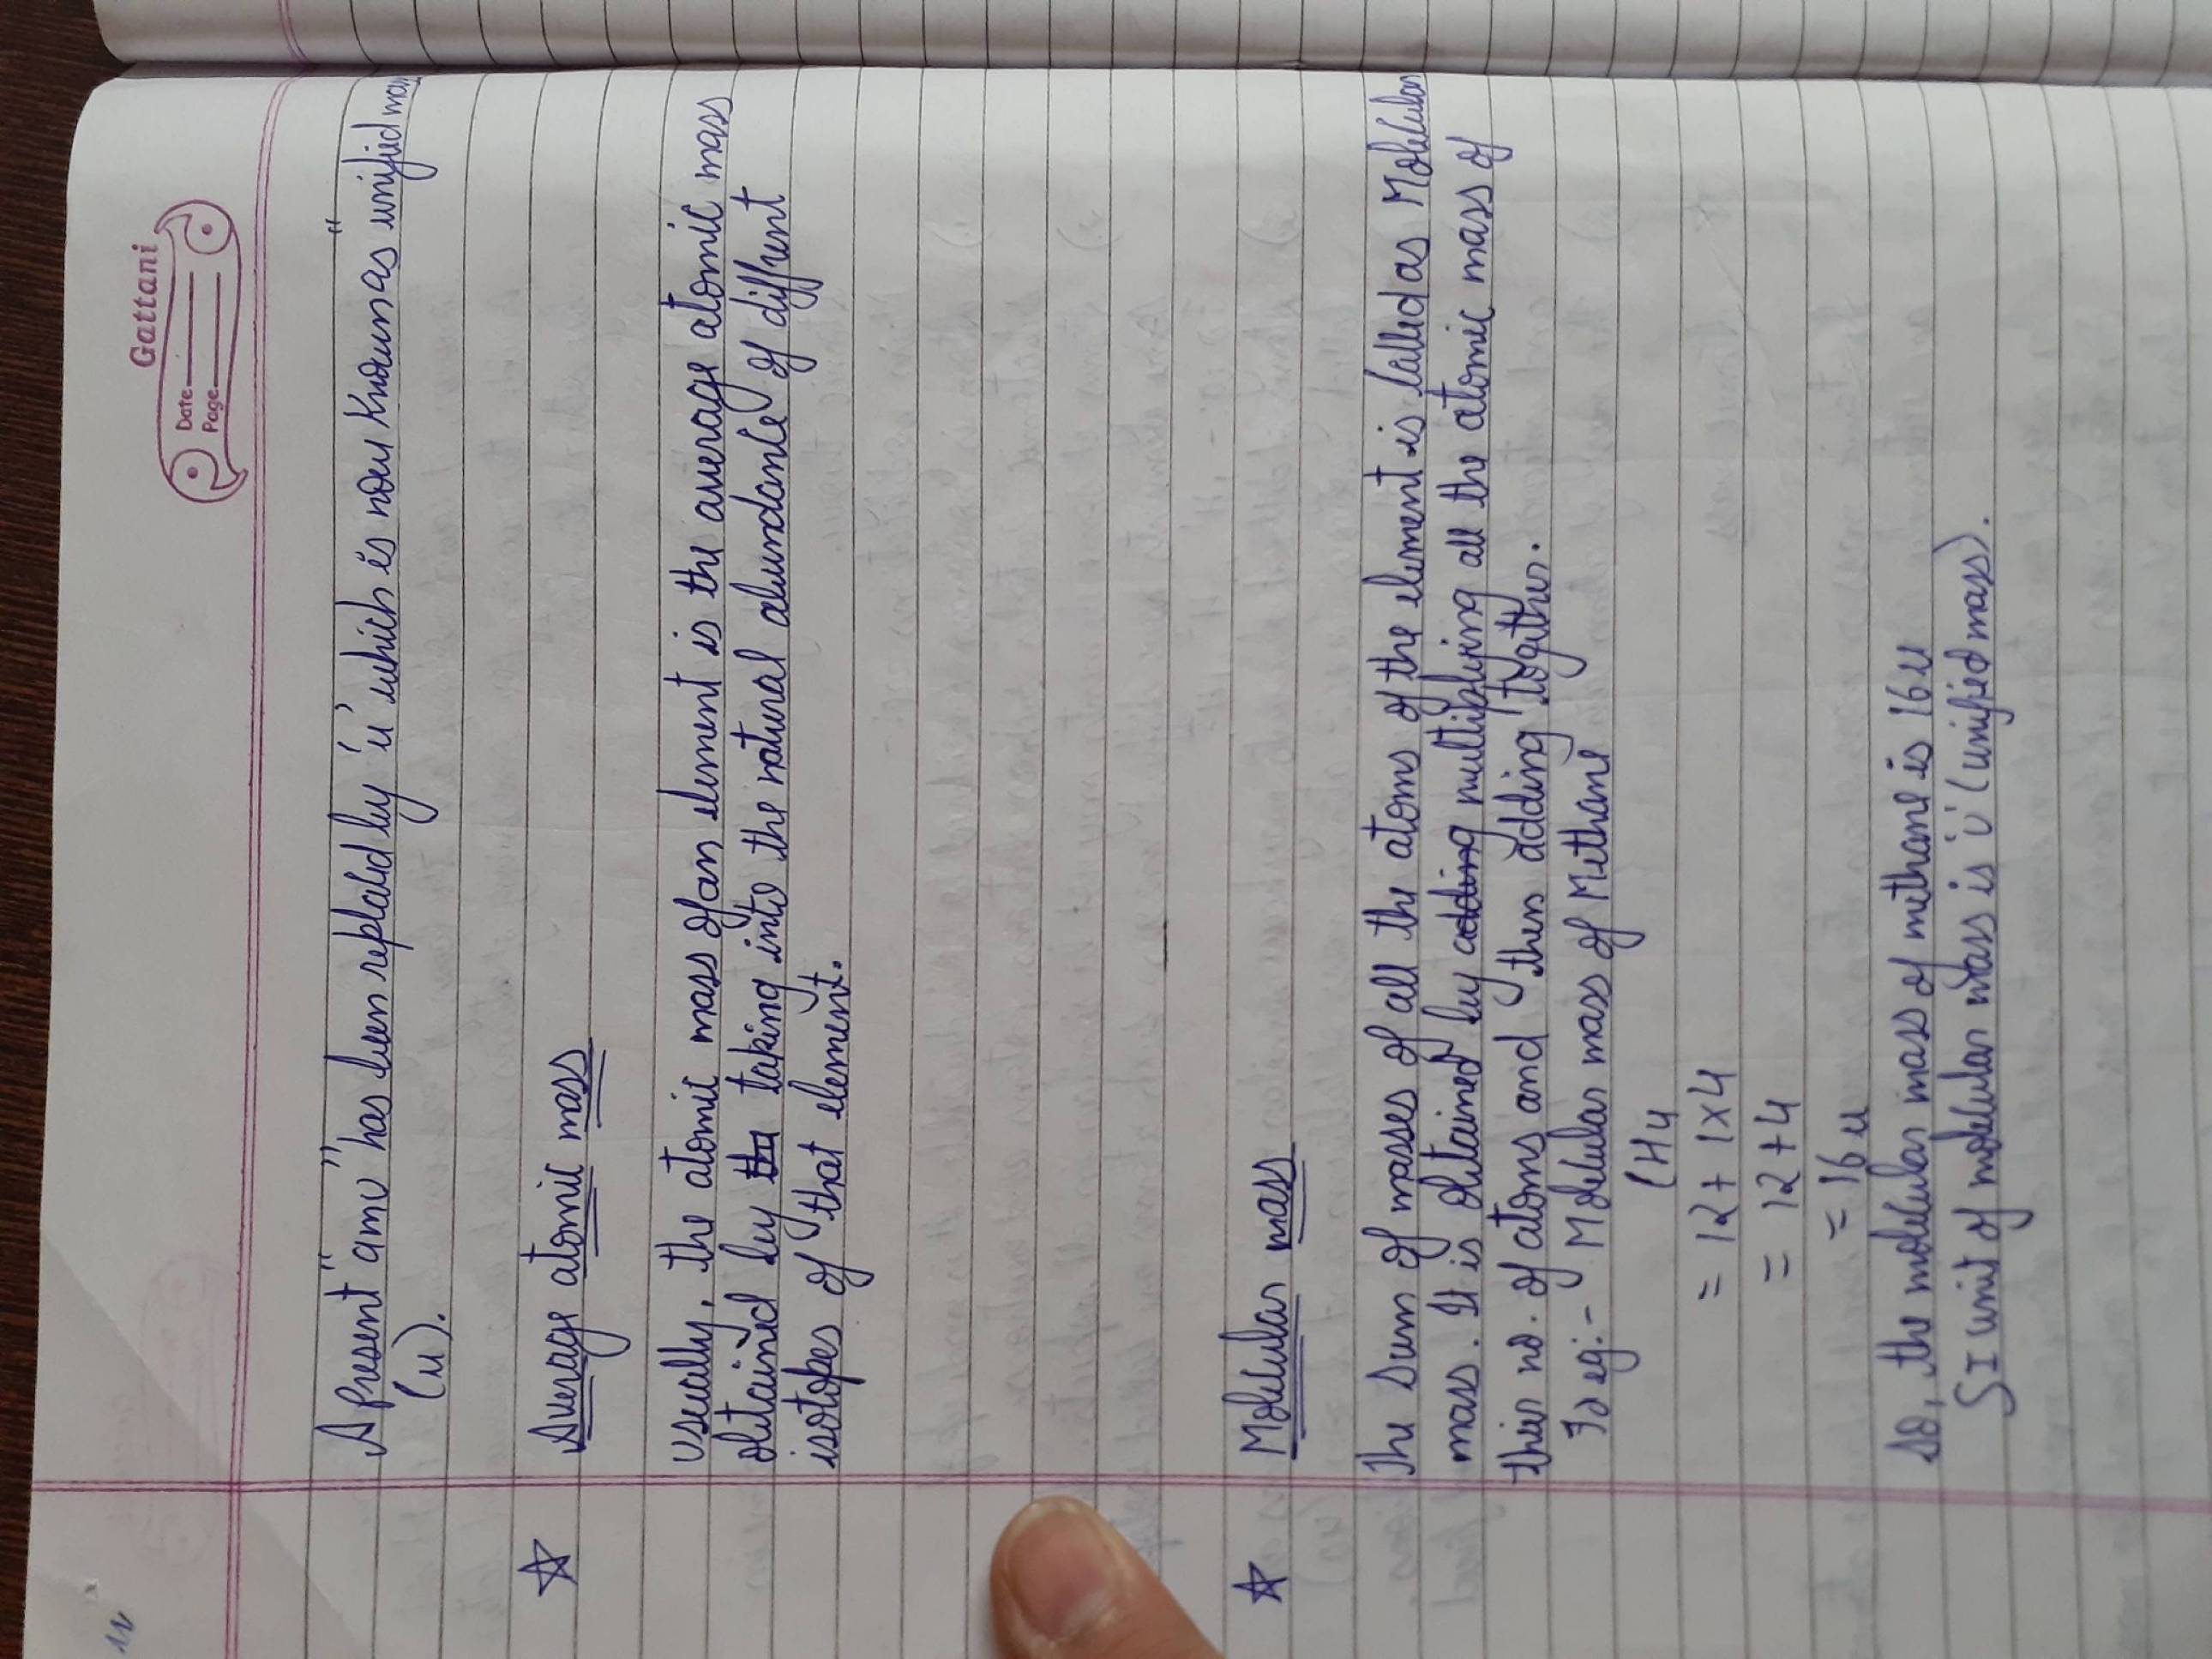 Gattani
Date
Page
A present "amu" has been replaced by 'u' which is now known as "unified mass
(u).
☆ Average atomic mass
Usually, the atomic mass of an element is the average atomic mass
obtained by taking into the natural abundance of diffrent
isotopes of that element.
☆ Molecular mass
The sum of masses of all the atoms of the element is called as Molecular
mass. It is obtained by adding multiplying all the atomic mass of
their no. of atoms and then adding togather.
Fo eg:- Molecular mass of Methane
CH4
= 12 + 1 x 4
= 12 + 4
= 16 u
So, the molecular mass of methane is 16 u
SI unit of molecular mass is 'u' (unified mass).